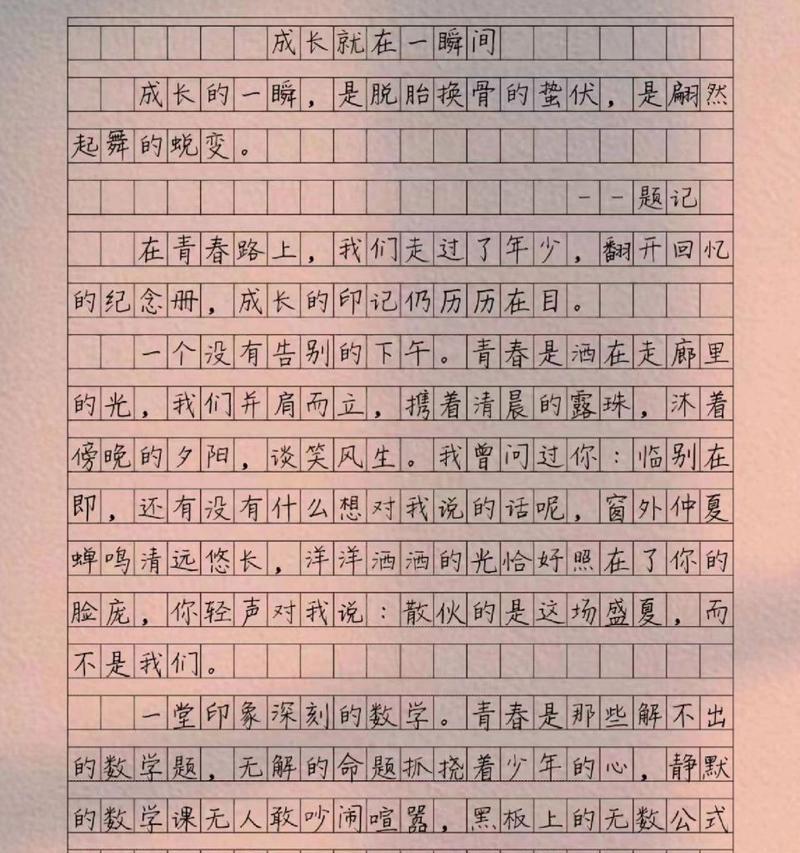 成长就在一瞬间
成长的一瞬，是脱胎换骨的蛰伏，是翩然
起舞的蜕变。
－－题记
在青春路上，我们走过了年少，翻开回忆
的纪念册，成长的印记仍历历在目。
一个没有告别的下午。青春是洒在走廊里
的光，我们并肩而立，携着清晨的露珠，沐着
傍晚的夕阳，谈笑风生。我曾问过你：临别在
即，还有没有什么想对我说的话呢，窗外仲夏
蝉鸣清远悠长，洋洋洒洒的光恰好照在了你的
脸庞，你轻声对我说：散伙的是这场盛夏，而
不是我们。
一堂印象深刻的数学。青春是那些解不出
的数学题，无解的命题抓挠着少年的心，静默
的数学课无人敢吵闹喧嚣，黑板上的无数公式